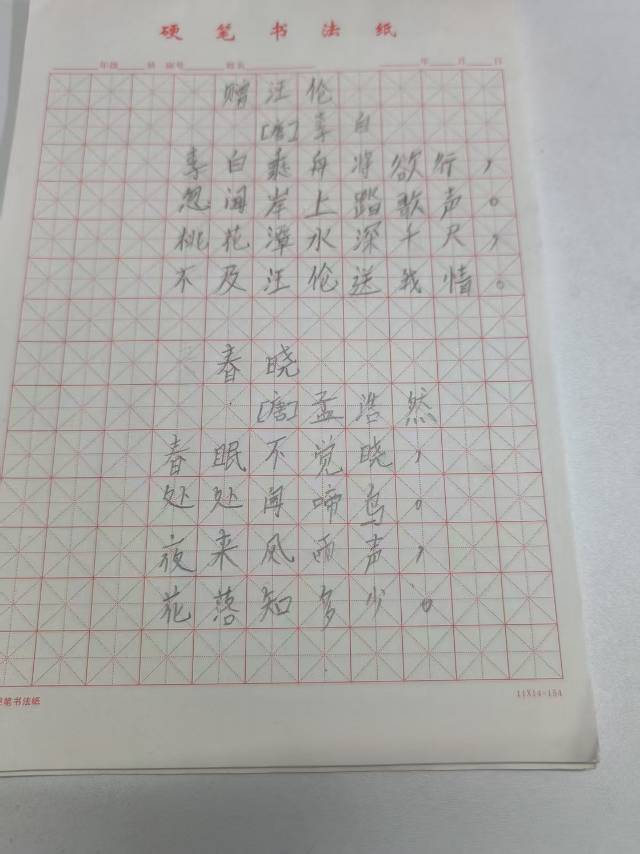 硬笔书法纸
年级 班 座号 姓名 年 月 日
赠汪伦
[唐]李白
李白乘舟将欲行,
忽闻岸上踏歌声。
桃花潭水深千尺,
不及汪伦送我情。
春晓
[唐]孟浩然
春眠不觉晓,
处处闻啼鸟。
夜来风雨声,
花落知多少。
硬笔书法纸
11X14=154